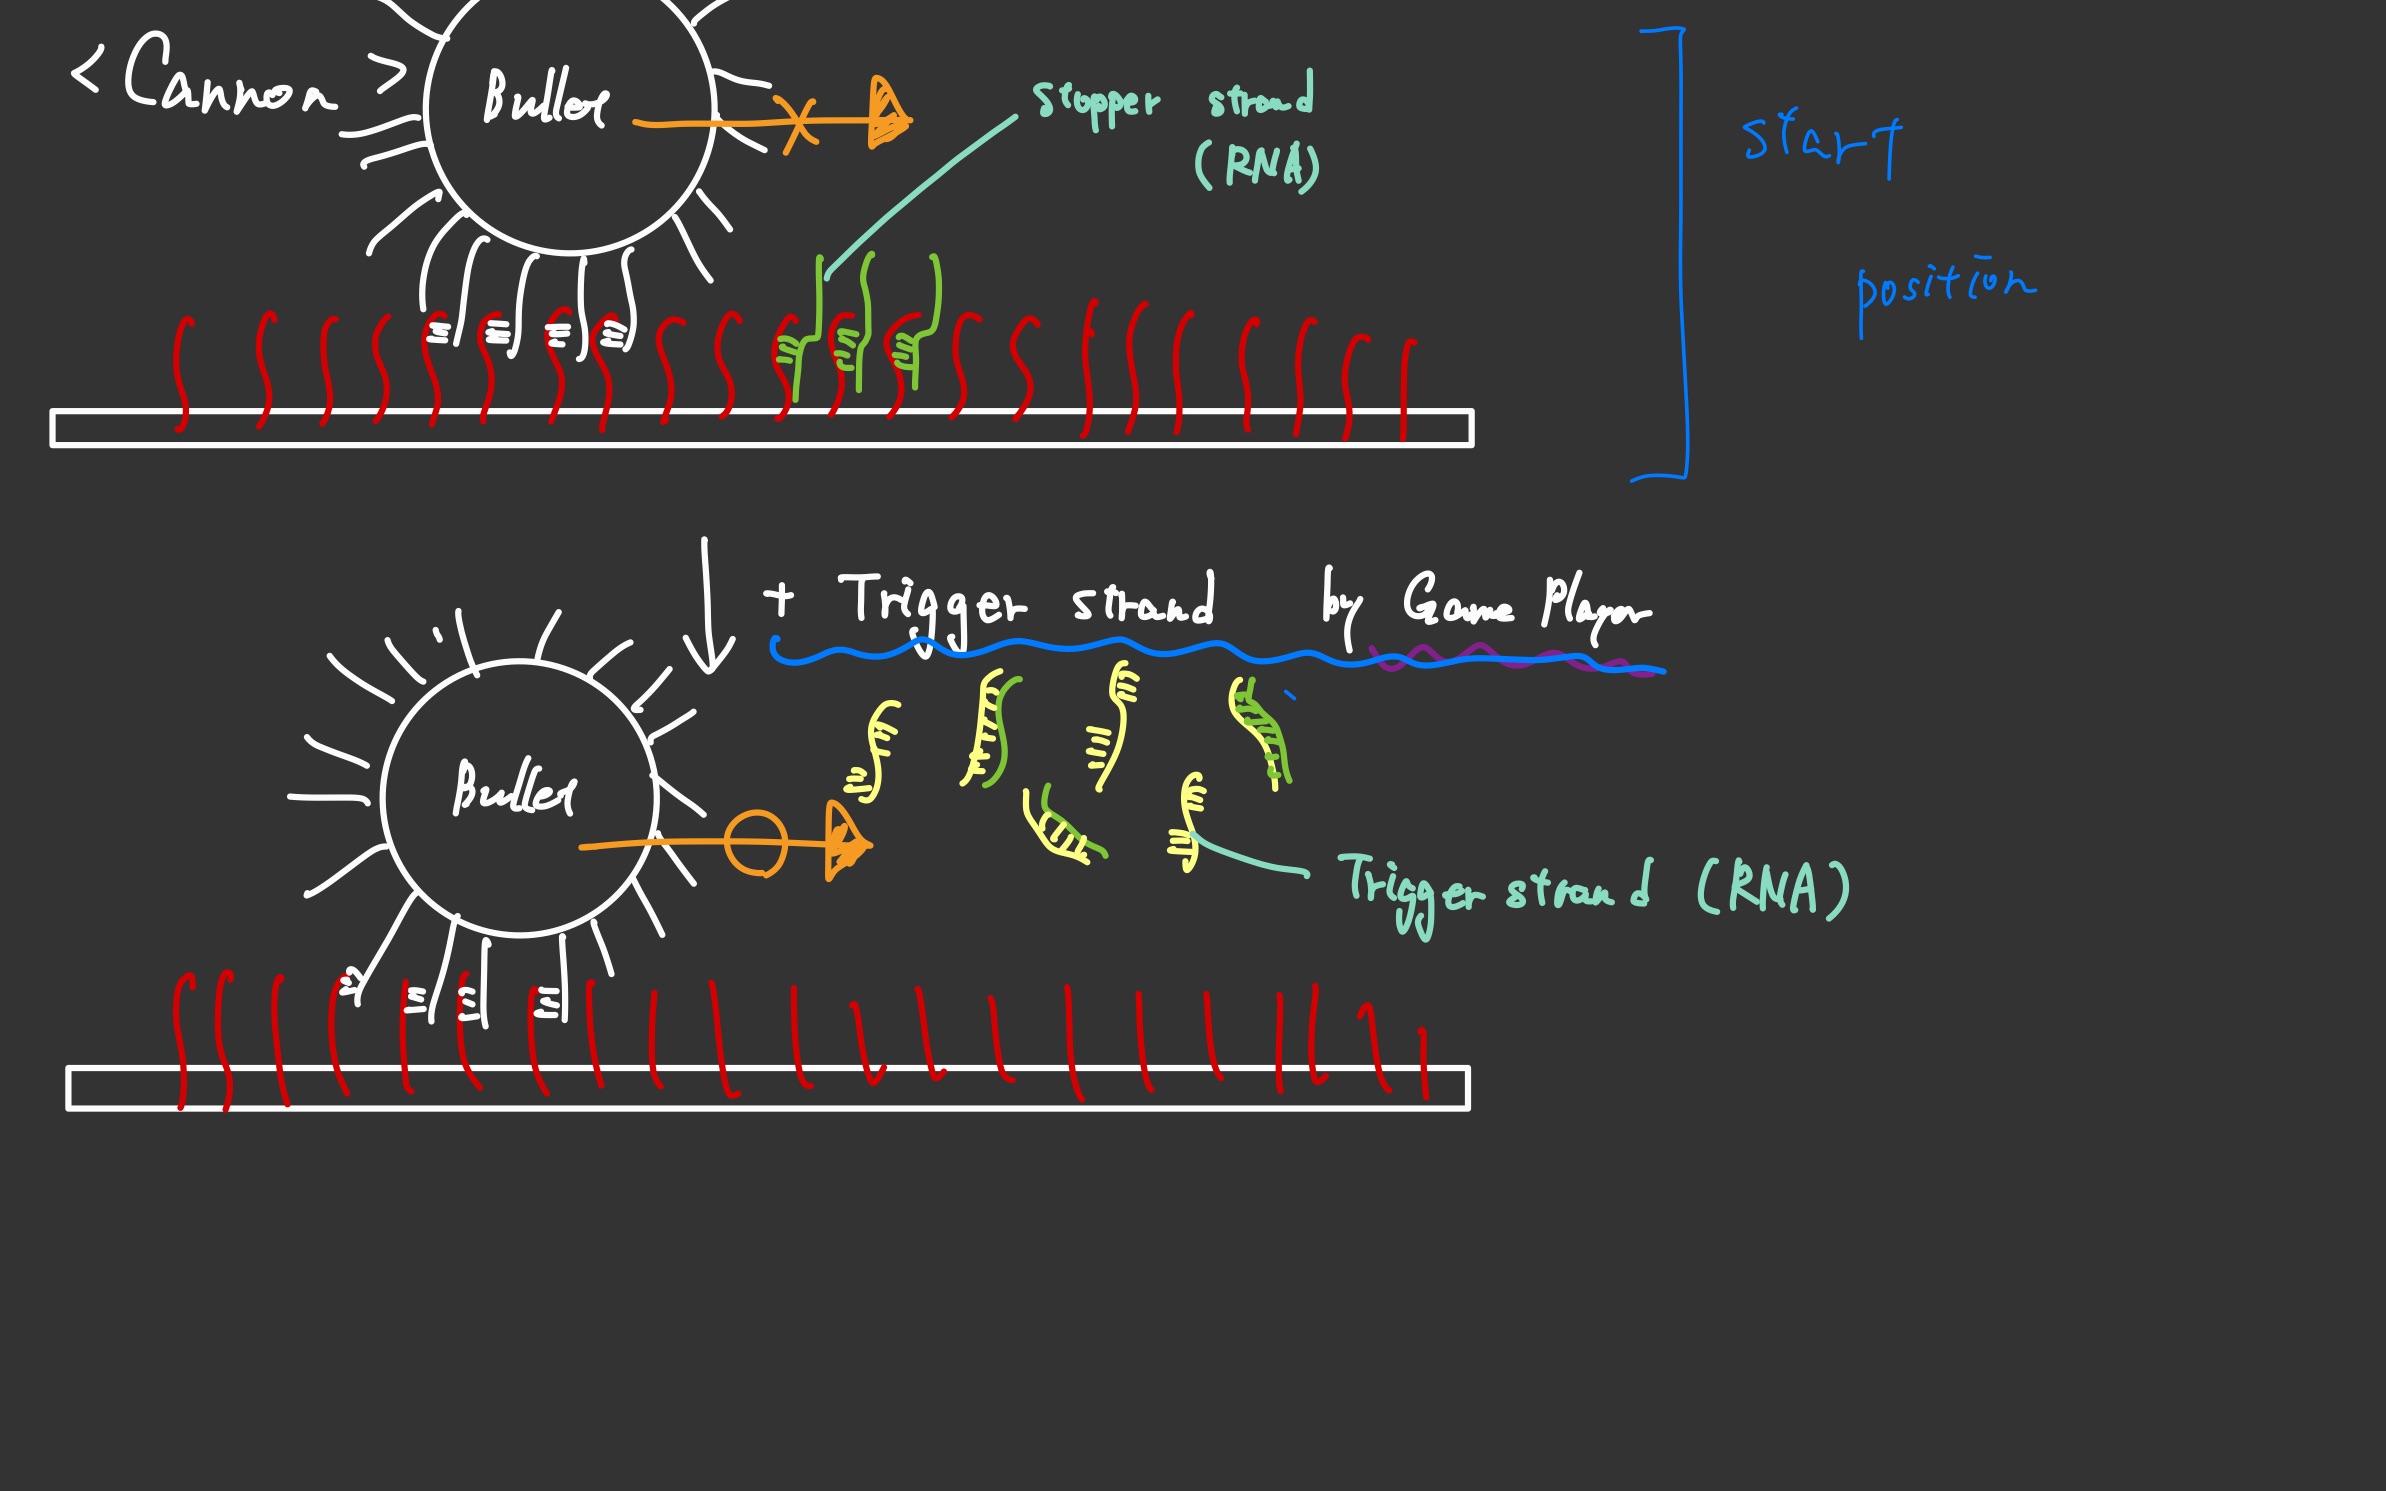 < Cannon >
Bullet
stopper strand
(RNA)
start
position
+ Trigger strand by Game Player
Bullet
Trigger strand (RNA)